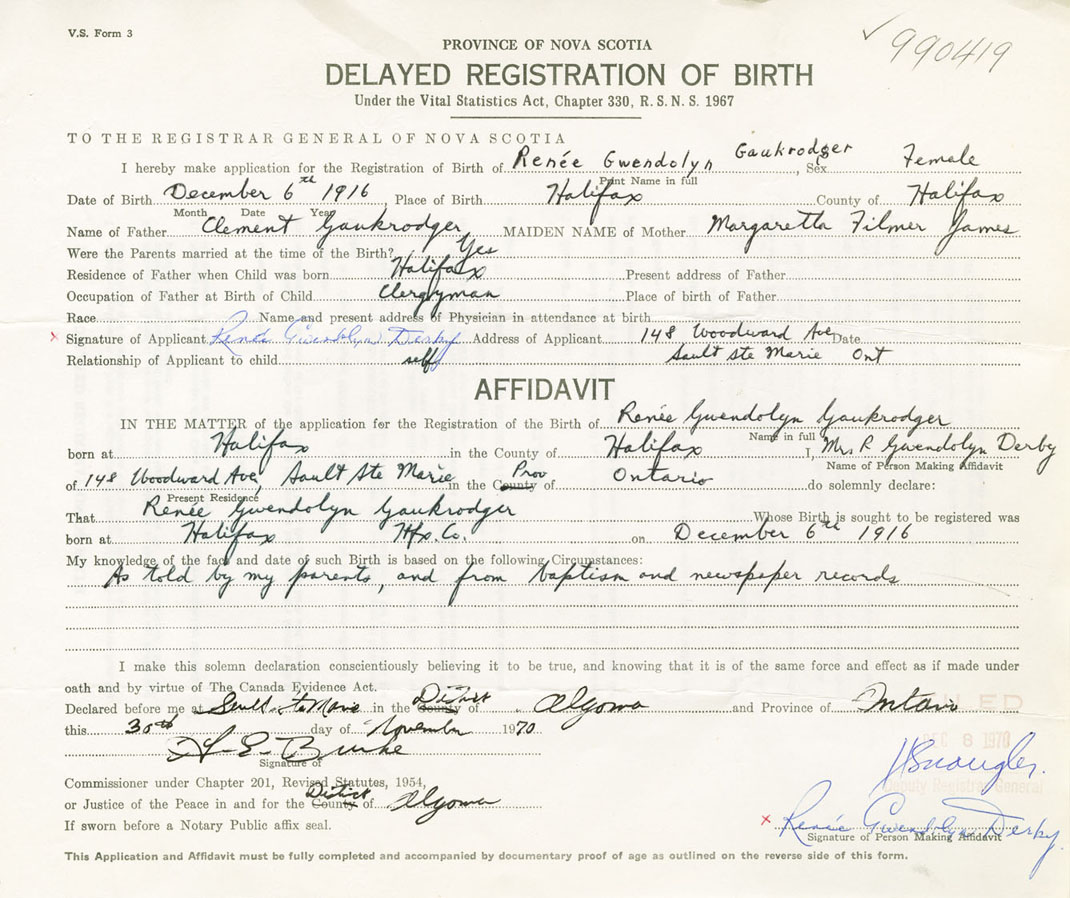 V.S. Form 3
990419
PROVINCE OF NOVA SCOTIA
DELAYED REGISTRATION OF BIRTH
Under the Vital Statistics Act, Chapter 330, R.S.N.S. 1967
TO THE REGISTRAR GENERAL OF NOVA SCOTIA
I hereby make application for the Registration of Birth of Renée Gwendolyn Gaukrodger, Sex Female
Print Name in full
Date of Birth December 6th 1916, Place of Birth Halifax County of Halifax
Month Date Year
Name of Father Clement Gaukrodger, MAIDEN NAME of Mother Margaretta Filmer James
Were the Parents married at the time of the Birth? Yes
Residence of Father when Child was born Halifax Present address of Father
Occupation of Father at Birth of Child Clergyman Place of birth of Father
Race Name and present address of Physician in attendance at birth
x Signature of Applicant Renée Gwendolyn Derby Address of Applicant 148 Woodward Ave Date
Relationship of Applicant to child self Sault Ste Marie Ont
AFFIDAVIT
IN THE MATTER of the application for the Registration of the Birth of Renée Gwendolyn Gaukrodger
Name in full
born at Halifax in the County of Halifax I, Mrs R Gwendolyn Derby
Name of Person Making Affidavit
of 148 Woodward Ave, Sault Ste Marie in the County Prov of Ontario do solemnly declare:
Present Residence
That Renée Gwendolyn Gaukrodger Whose Birth is sought to be registered was
born at Halifax Hfx. Co. on December 6th 1916
My knowledge of the fact and date of such Birth is based on the following Circumstances:
As told by my parents, and from baptism and newspaper records
I make this solemn declaration conscientiously believing it to be true, and knowing that it is of the same force and effect as if made under
oath and by virtue of The Canada Evidence Act.
Declared before me at Sault Ste Marie in the County District of Algoma and Province of Ontario
this 30th day of November 1970
DEC 8 1970
A. E. Burke
Signature of
Commissioner under Chapter 201, Revised Statutes, 1954,
Deputy Registrar General
or Justice of the Peace in and for the County District of Algoma
If sworn before a Notary Public affix seal.
x Renée Gwendolyn Derby
Signature of Person Making Affidavit
This Application and Affidavit must be fully completed and accompanied by documentary proof of age as outlined on the reverse side of this form.